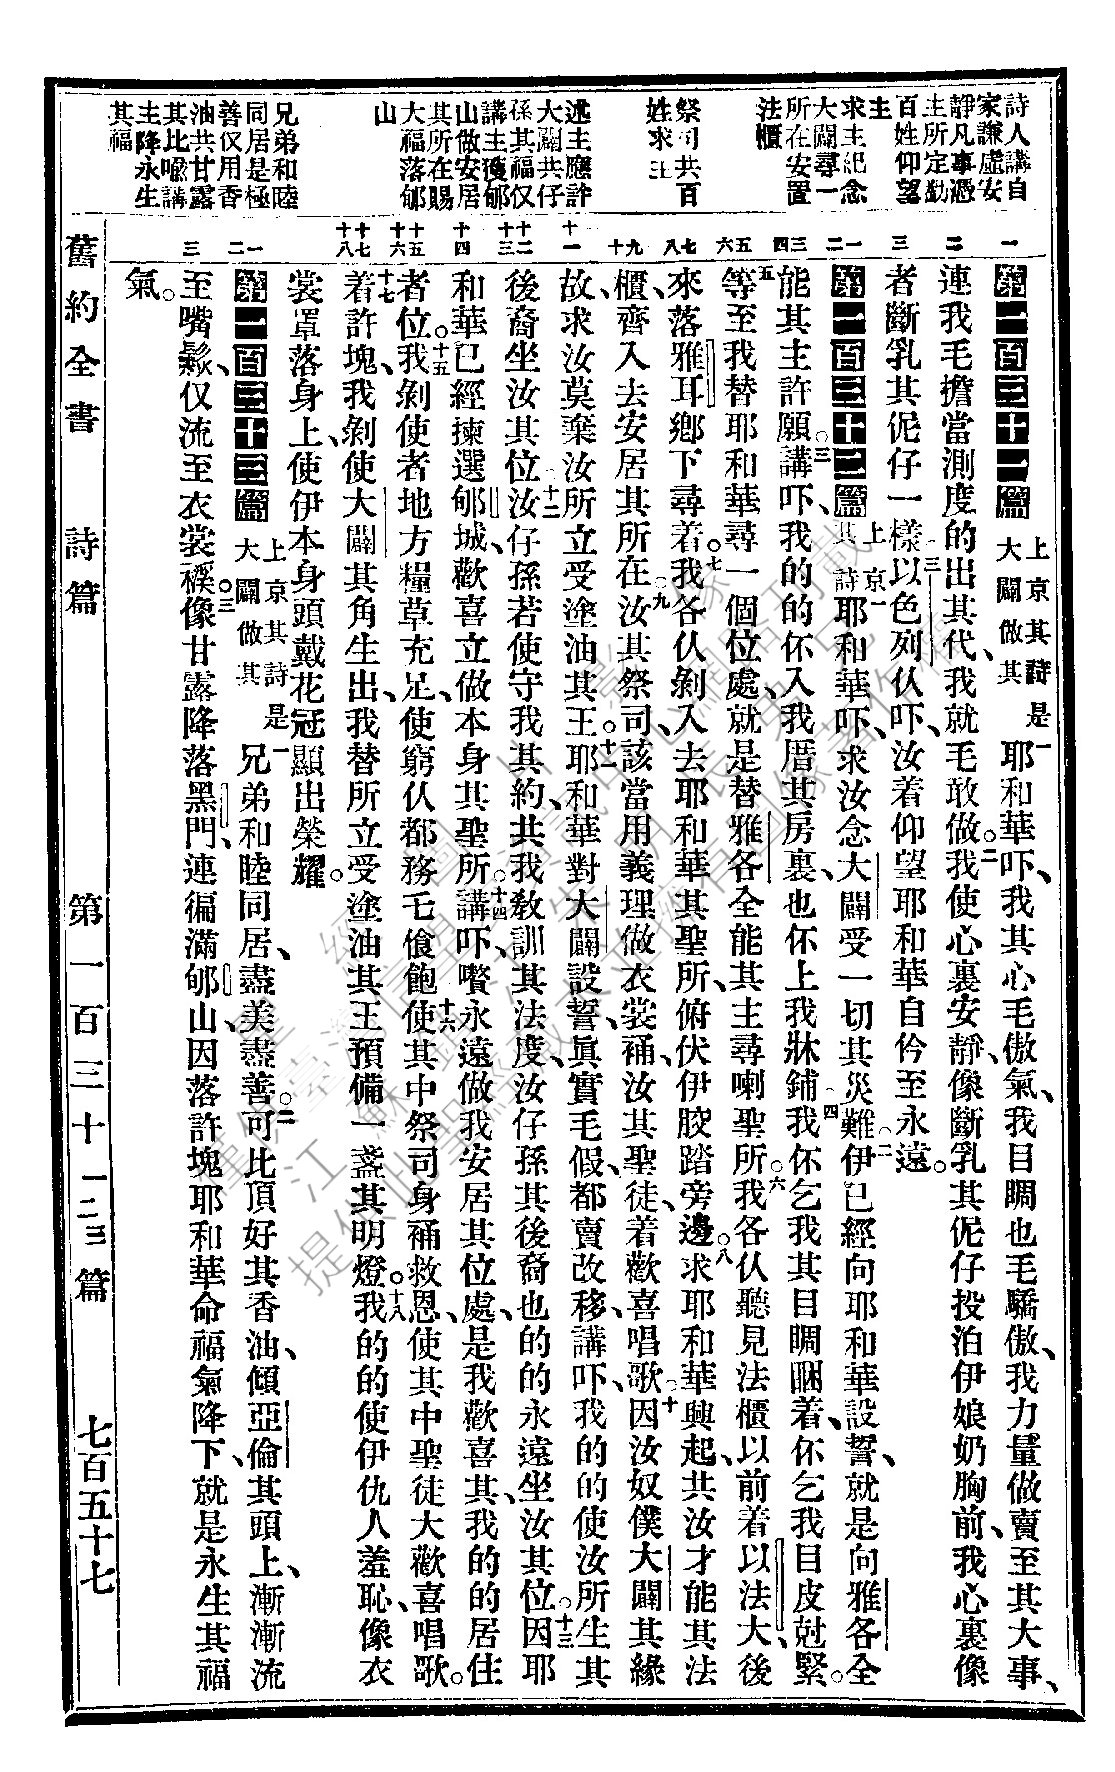 詩人講自
家謙虛安
靜凡事憑
主所定勸
百姓仰望
主
求主紀念
大闢尋一
所在安置
法櫃
祭司共百
姓求主
述主應許
大闢共仔
孫其福仅
講主獲郇
山做安居
其所在賜
大福落郇
山
兄弟和睦
同居是極
善仅用香
油共甘露
其比喻講
主降永生
其福
一
二
三
一
二
三
四
五
六
七
八
九
十
十一
十二
十三
十四
十五
十六
十七
十八
一
二
三
第一百三十一篇 上京其詩是大闢做其 一耶和華吓、我其心毛傲氣、我目睭也毛驕傲、我力量做賣至其大事、
連我毛擔當測度的出其代、我就毛敢做。二我使心裏安靜、像斷乳其伲仔投泊伊娘奶胸前、我心裏像
者斷乳其伲仔一樣。三以色列仈吓、汝着仰望耶和華自今至永遠。
第一百三十二篇 上京其詩 一耶和華吓、求汝念大闢受一切其災難。二伊已經向耶和華設誓、就是向雅各全
能其主許願。三講吓、我的的伓入我厝其房裏、也伓上我牀鋪。四我伓乞我其目睭睏着、伓乞我目皮尅緊。
五等至我替耶和華尋一個位處、就是替雅各全能其主尋喇聖所。六我各仈聽見法櫃以前着以法大、後
來落雅耳鄉下尋着。七我各仈剝入去耶和華其聖所、俯伏伊骹踏旁邊。八求耶和華興起、共汝才能其法
櫃、齊入去安居其所在。九汝其祭司、該當用義理做衣裳補、汝其聖徒、着歡喜唱歌。十因汝奴僕大闢其緣
故、求汝莫棄汝所立受塗油其王。十一耶和華對大闢設誓、眞實毛假、都賣改移、講吓、我的的使汝所生其
後裔坐汝其位。十二汝仔孫若使守我其約、共我教訓其法度、汝仔孫其後裔也的的永遠坐汝其位。十三因耶
和華已經揀選郇城、歡喜立做本身其聖所。十四講吓、嚽永遠做我安居其位處、是我歡喜其、我的的居住
者位。十五我剝使者地方糧草充足、使窮仈都務乇飧飽。十六使其中祭司身補救恩、使其中聖徒大歡喜唱歌。
十七着許塊、我剝使大闢其角生出、我替所立受塗油其王預備一盞其明燈。十八我的的使伊仇人羞恥、像衣
裳罩落身上、使伊本身頭戴花冠顯出榮耀。
第一百三十三篇 上京其詩是大闢做其 一兄弟和睦同居、盡美盡善。二可比頂好其香油、傾亞倫其頭上、漸漸流
至嘴鬏、仅流至衣裳襆。三像甘露降落黑門、連徧滿郇山、因落許塊耶和華命福氣降下、就是永生其福
氣。
舊約全書 詩篇 第一百三十一二三篇 七百五十七